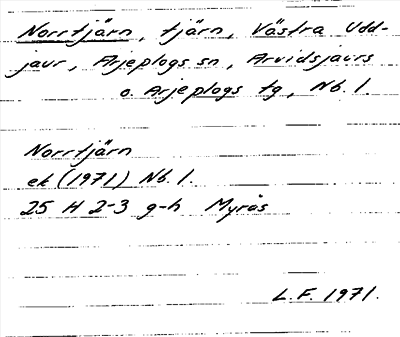 Norrtjärn, tjärn, Västra Udd-
jaur, Arjeplogs sn, Arvidsjaurs
o. Arjeplogs tg, Nb. l.
Norrtjärn
ek (1971) Nb. l.
25 H 2-3 g-h Myrås
L.F. 1971.